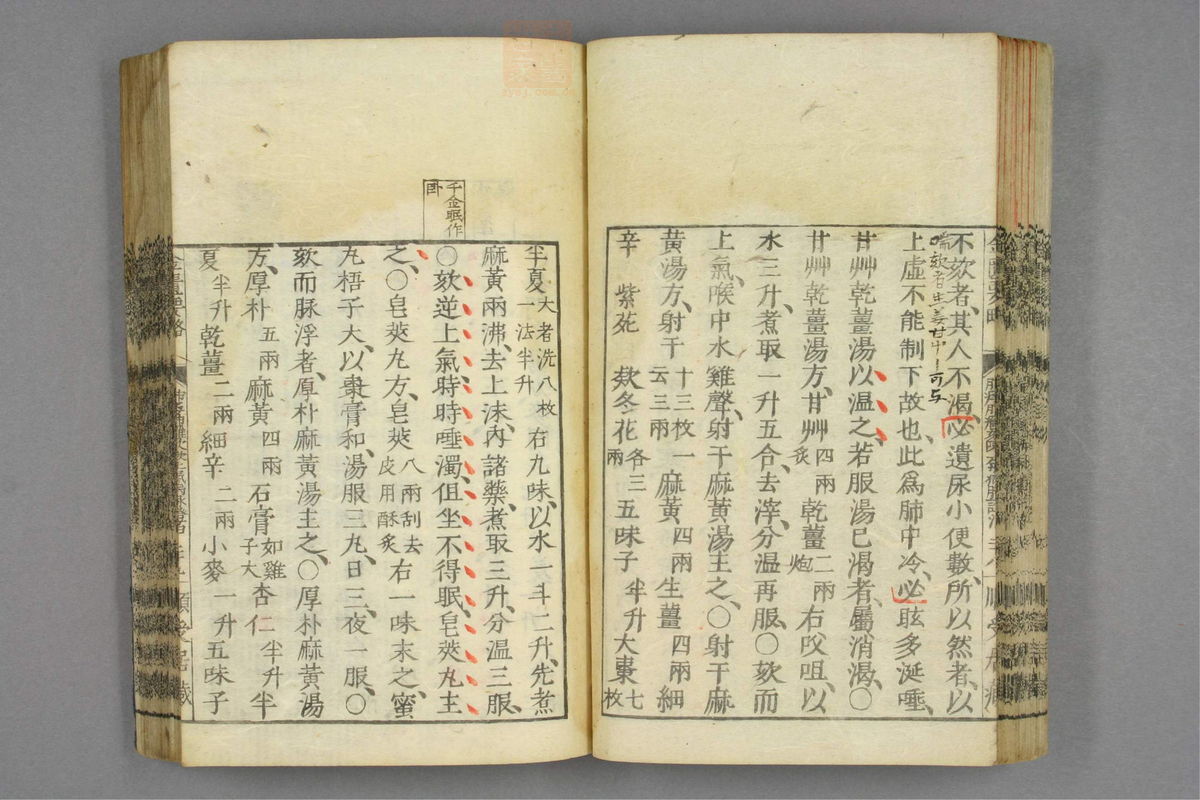 不欬者、其人不渴、必遺尿小便數、所以然者、以
上虛不能制下故也、此爲肺中冷、必眩多涎唾、
甘艸乾薑湯以溫之、若服湯已渴者、屬消渴、〇
甘艸乾薑湯方、甘艸四兩炙乾薑二兩炮右㕮咀、以
水三升、煮取一升五合、去滓、分溫再服、〇欬而
上氣、喉中水雞聲、射干麻黃湯主之、〇射干麻
黃湯方、射干十三枚一云三兩麻黃四兩生薑四兩細
辛 紫苑 欵冬花各三兩五味子半升大棗七枚
千金眠作
臥
半夏大者洗八枚一法半升右九味、以水一斗二升、先煮
麻黃兩沸、去上沫、內諸藥、煮取三升、分溫三服、
〇欬逆上氣、時時唾濁、但坐不得眠、皂莢丸主
之、〇皂莢丸方、皂莢八兩刮去皮用酥炙右一味末之、蜜
丸梧子大、以棗膏和、湯服三丸、日三、夜一服、〇
欬而脉浮者、厚朴麻黃湯主之、〇厚朴麻黃湯
方、厚朴五兩麻黃四兩石膏如雞子大杏仁半升半
夏半升乾薑二兩細辛二兩小麥一升五味子